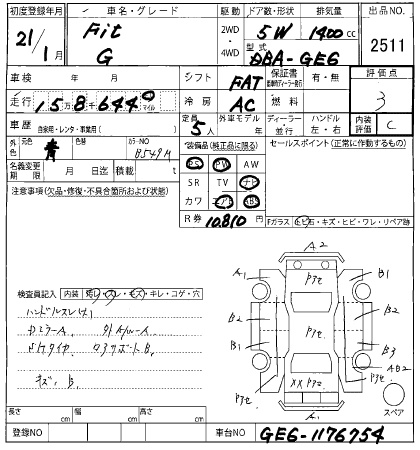 初度登録年月 車名・グレード 駆動 ドア数・形状 排気量 出品NO
21/1月 Fit G 2WD・4WD 5W 1400cc 2511
型式 DBA-GE6
車検 年 月 シフト FAT 保証書 有・無 評価点
走行 158,644 マイル 冷房 AC 燃料 3
車歴 自家用・レンタ・事業用( ) 定員 5人 外車モデル 年 ディーラー・並行 ハンドル 左・右 内装評価 C
外色 元色 青 色替 カラーNO B549M
装備品(純正品に限る) セールスポイント(正常に動作するもの)
名義変更期限 月 日迄 積載 t
PS PW AW
注意事項(欠品・修復・不具合箇所および状態)
SR TV ナビ
カワ エアB ABS
R券 10,810円
Fガラス ヒビ石・キズ・ヒビ・ワレ・リペア跡
A2
A1 Pアセ B1
検査員記入 内装 汚レ・スレ・キズ・キレ・コゲ・穴
ハンドルスレ
B2 Pアセ B2
B1 B3
キズ B
AB2
Pアセ XX Pアセ Pアセ
A1
スペア
長さ cm 幅 cm 高さ cm
登録NO 車台NO GE6-1176754